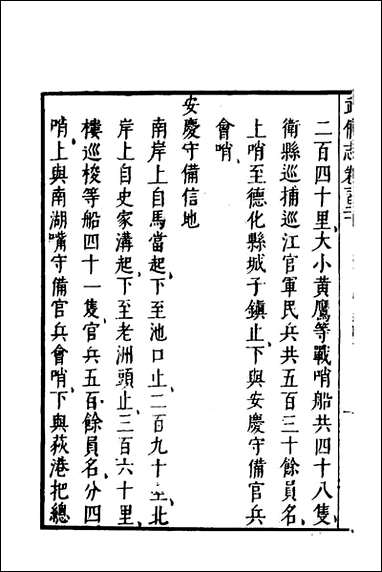 武備志卷二百二十
二百四十里大小黃鷹等戰哨船共四十八隻
衛縣巡捕巡江官軍民兵共五百三十餘員名
上哨至德化縣城子鎮止下與安慶守備官兵
會哨
安慶守備信地
南岸上自馬當起下至池口止二百九十里北
岸上自史家溝起下至老洲頭止三百六十里
樓巡梭等船四十一隻官兵五百餘員名分四
哨上與南湖嘴守備官兵會哨下與荻港把總